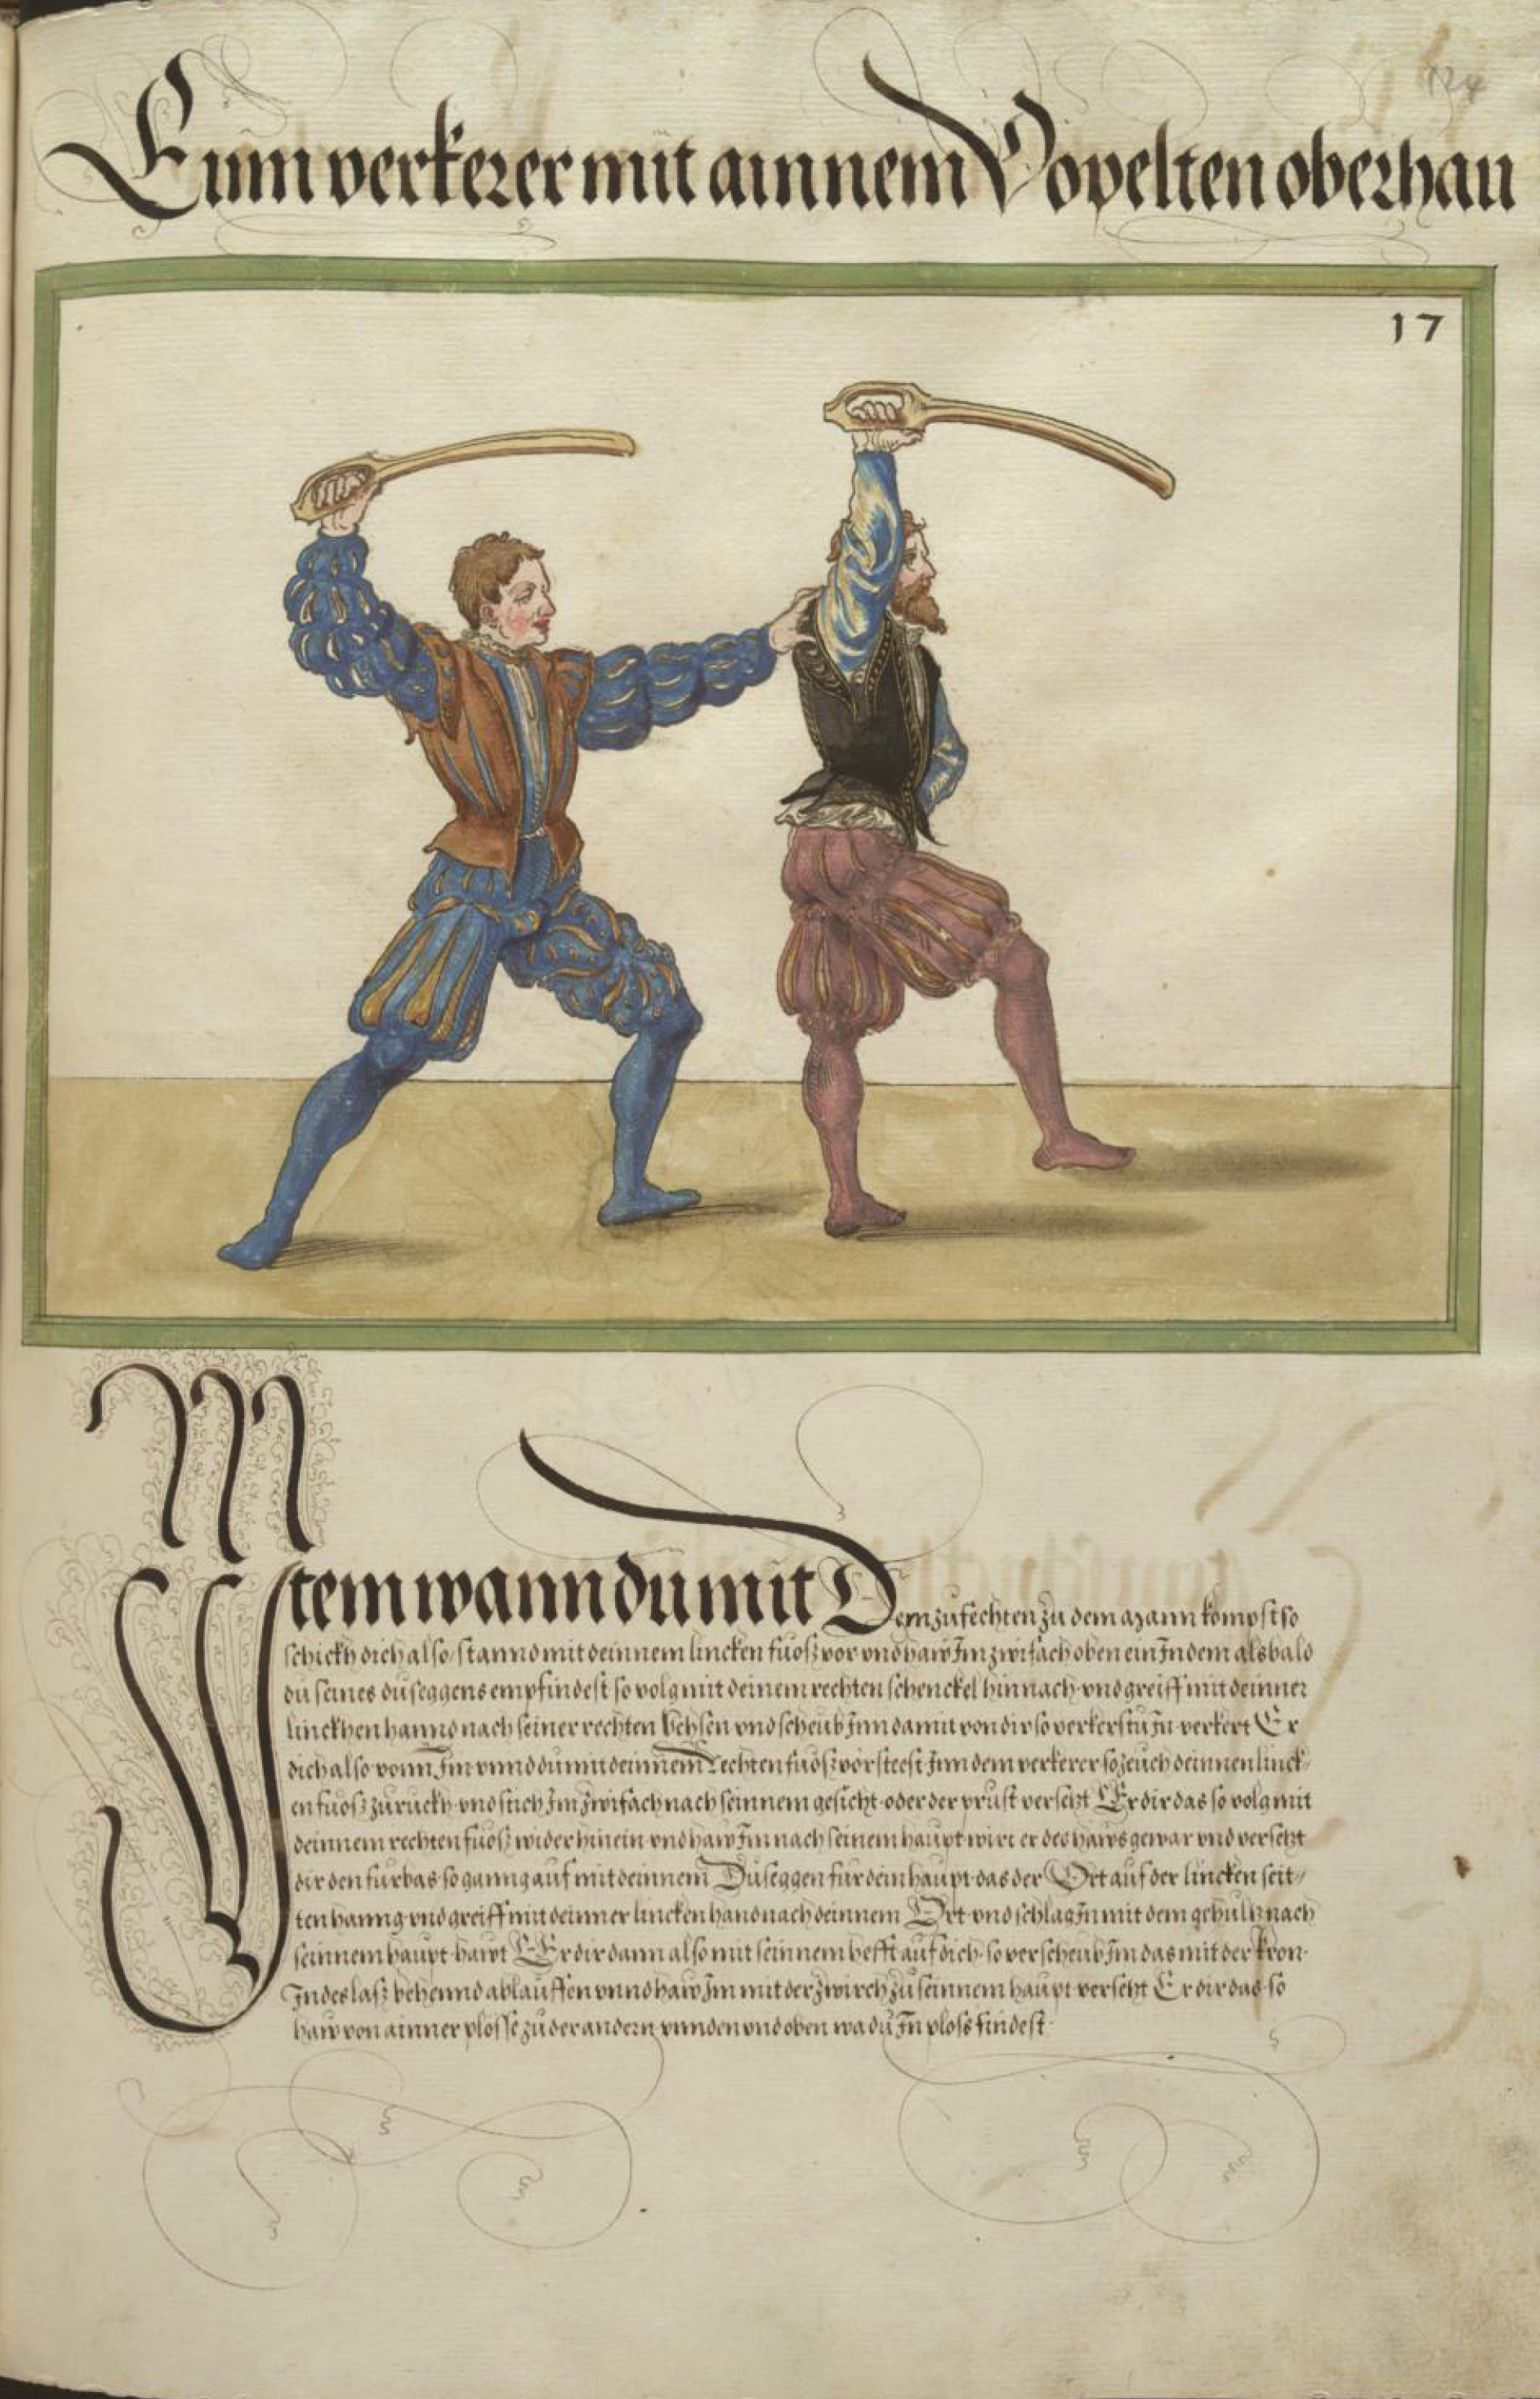 124
Eum verkerer mit ainnem Dopelten oberhau
17
Item wann du mit Dem zufechten zu dem Mann kompst so
schickh dich also stannd mit deinnem lincken fuosz vor vnd haw Im zwifach oben ein Indem alsbald
du seines duseggens empfindest so volg mit deinem rechten schenckel hinnach vnd greiff mit deinner
linckhen hannd nach seiner rechten Vchsen vnd scheub Inn damit von dir so verkerstu In verkert Er
dich also vonn Im vnnd du mit deinnem Rechten fuosz vor steest Inn dem verkerer so zeuch deinnen linck-
en fuosz zuruckh vnd stich Im zwifach nach seinnem gesicht oder der prust versetzt Er dir das so volg mit
deinnem rechten fuosz wider hinein vnd haw Im nach seinem haupt wirt er des haws gewar vnd versetzt
dir den furbas so ganng auf mit deinnem Duseggen fur dein haupt das der Ort auf der lincken seit-
ten hanng vnd greiff mit deinner lincken hand nach deinnem Ort vnd schlag In mit dem gehultz nach
seinnem haupt hawt Er dir dann also mit seinnem hefft auf dich so verscheub Im das mit der kron
Indes lasz behennd ablauffen vnnd haw Im mit der zwirch zu seinnem haupt versetzt Er dir das so
haw von ainner plosse zu der andern vnnden vnd oben wa du In ploss findest